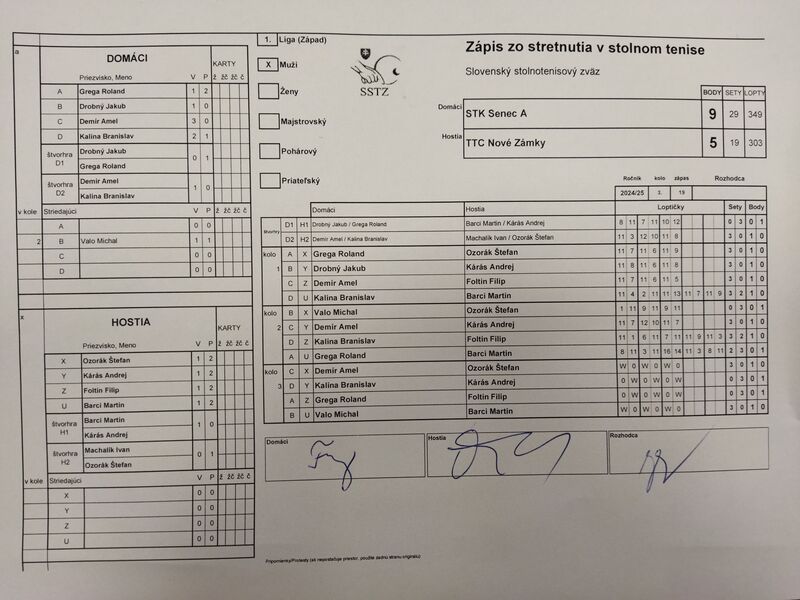 1. Liga (Západ)
X Muži
Ženy
Majstrovský
Pohárový
Priateľský
SSTZ
Zápis zo stretnutia v stolnom tenise
Slovenský stolnotenisový zväz
BODY SETY LOPTY
Domáci STK Senec A 9 29 349
Hostia TTC Nové Zámky 5 19 303
Ročník kolo zápas Rozhodca
2024/25 2. 19
a
DOMÁCI
KARTY
Priezvisko, Meno V P ž žč žč č
A Grega Roland 1 2
B Drobný Jakub 1 0
C Demír Amel 3 0
D Kalina Branislav 2 1
štvorhra D1 Drobný Jakub 0 1
Grega Roland
štvorhra D2 Demír Amel 1 0
Kalina Branislav
v kole Striedajúci V P
A 0 0
2 B Valo Michal 1 1
C 0 0
D 0 0
x
HOSTIA
KARTY
Priezvisko, Meno V P ž žč žč č
X Ozorák Štefan 1 2
Y Kárás Andrej 1 2
Z Foltín Filip 1 2
U Barci Martin 1 2
štvorhra H1 Barci Martin 1 0
Kárás Andrej
štvorhra H2 Machalík Ivan 0 1
Ozorák Štefan
v kole Striedajúci V P ž žč žč č
X 0 0
Y 0 0
Z 0 0
U 0 0
Domáci Hostia Loptičky Sety Body
štvorhry D1 H1 Drobný Jakub / Grega Roland Barci Martin / Kárás Andrej 8 11 7 11 10 12 0 3 0 1
D2 H2 Demír Amel / Kalina Branislav Machalík Ivan / Ozorák Štefan 11 3 12 10 11 8 3 0 1 0
kolo 1 A X Grega Roland Ozorák Štefan 11 7 11 6 11 9 3 0 1 0
B Y Drobný Jakub Kárás Andrej 11 8 11 6 11 8 3 0 1 0
C Z Demír Amel Foltín Filip 11 7 11 6 11 5 3 0 1 0
D U Kalina Branislav Barci Martin 11 4 2 11 11 13 11 7 11 9 3 2 1 0
kolo 2 B X Valo Michal Ozorák Štefan 1 11 9 11 9 11 0 3 0 1
C Y Demír Amel Kárás Andrej 11 7 12 10 11 7 3 0 1 0
D Z Kalina Branislav Foltín Filip 11 1 6 11 7 11 11 9 11 3 3 2 1 0
A U Grega Roland Barci Martin 8 11 3 11 16 14 11 3 8 11 2 3 0 1
kolo 3 C X Demír Amel Ozorák Štefan W 0 W 0 W 0 3 0 1 0
D Y Kalina Branislav Kárás Andrej 0 W 0 W 0 W 0 3 0 1
A Z Grega Roland Foltín Filip 0 W 0 W 0 W 0 3 0 1
B U Valo Michal Barci Martin W 0 W 0 W 0 3 0 1 0
Domáci Hostia Rozhodca
Pripomienky/Protesty (ak nepostačuje priestor, použite zadnú stranu originálu)